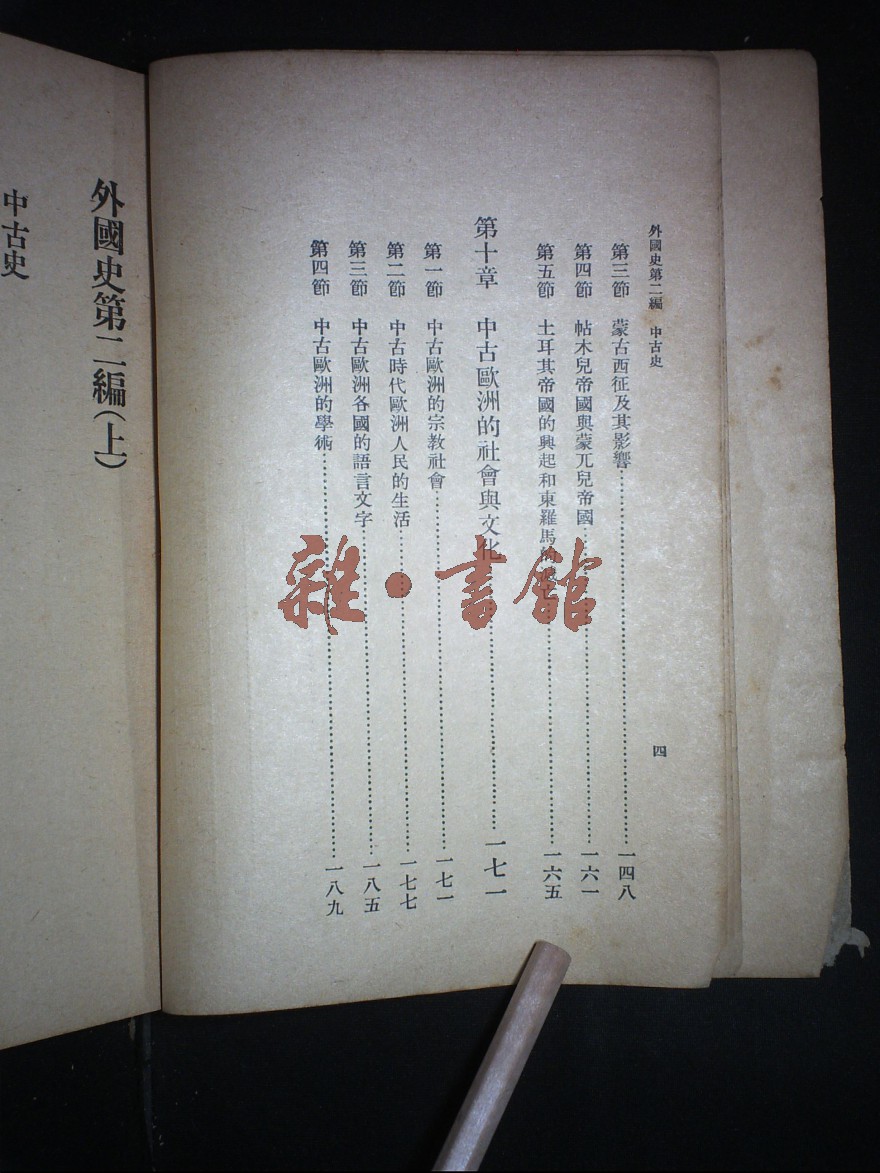 外國史第二編　中古史
四
第三節　蒙古西征及其影響……一四八
第四節　帖木兒帝國與蒙兀兒帝國……一六一
第五節　土耳其帝國的興起和東羅馬……一六五
第十章　中古歐洲的社會與文化……一七一
第一節　中古歐洲的宗教社會……一七一
第二節　中古時代歐洲人民的生活……一七七
第三節　中古歐洲各國的語言文字……一八五
第四節　中古歐洲的學術……一八九
外國史第二編(上)
中古史
雜·書館